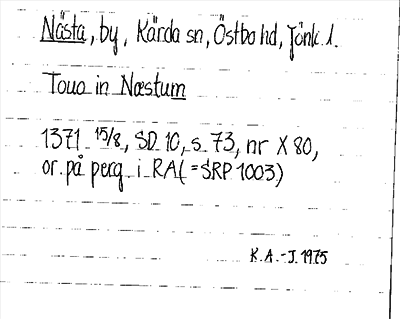 Nästa, by, Kärda sn, Östbo hd, Jönk. l.
Touo in Næstum
1371 15/8, SD 10, s. 73, nr X 80,
or. på perg i RA (=SRP 1003)
K.A.-J. 1975